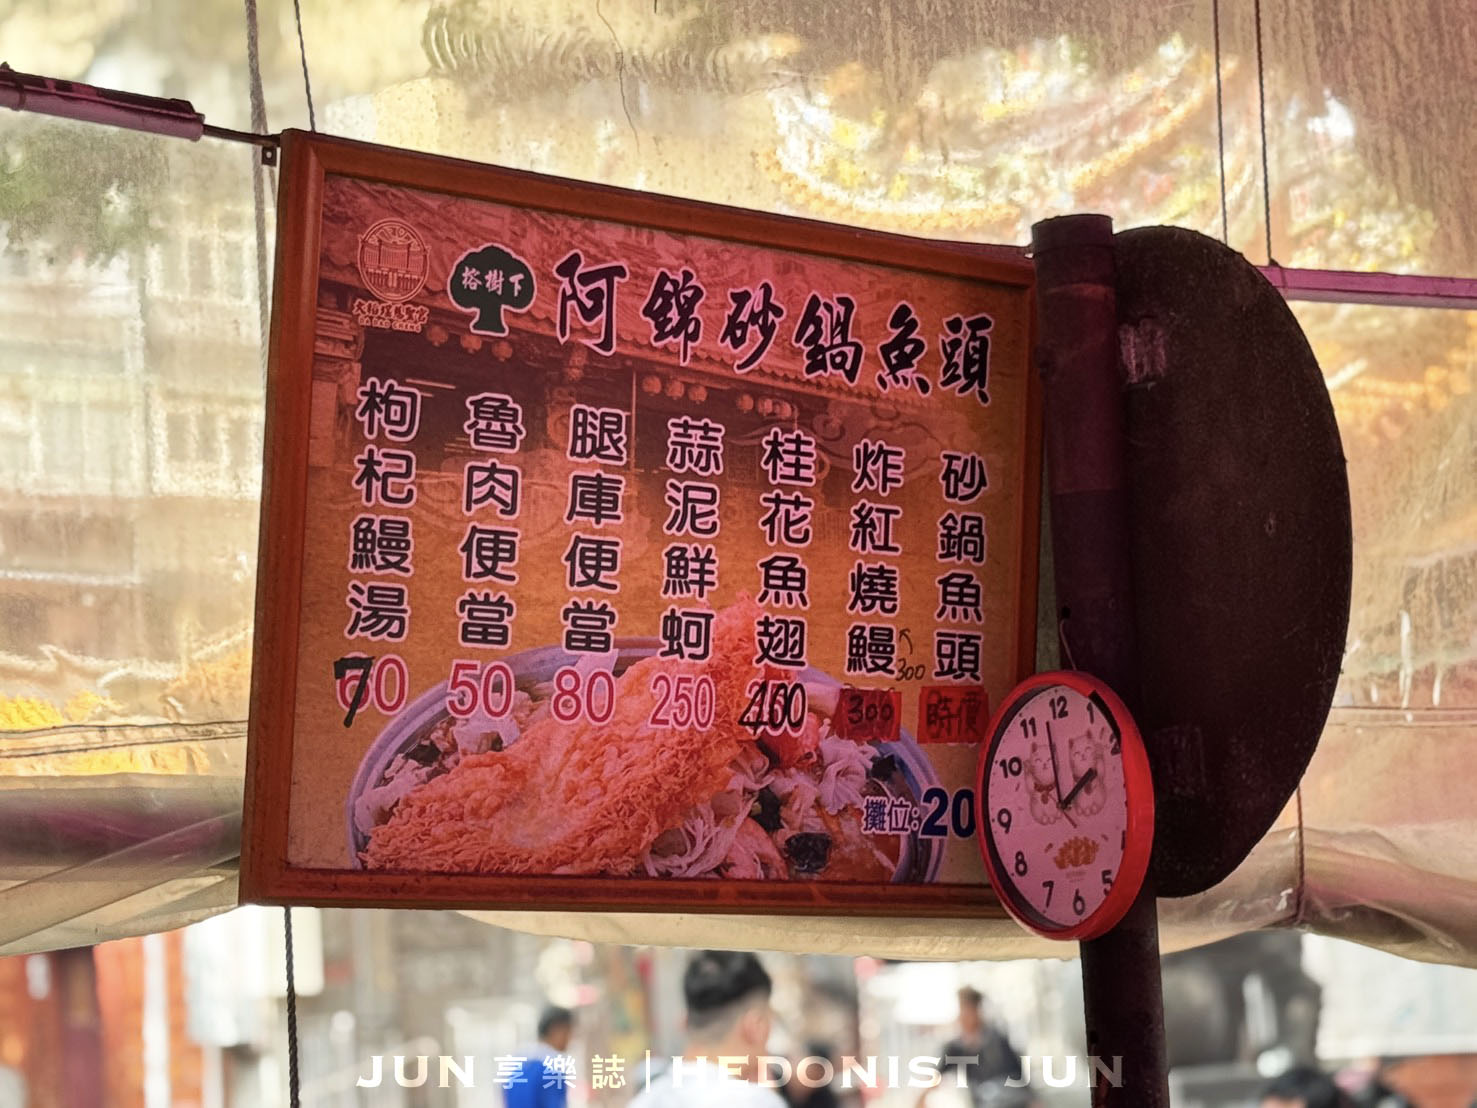 大稻埕慈聖宮
DA DAO CHENG
榕樹下
阿錦砂鍋魚頭
砂鍋魚頭 時價
炸紅燒鰻 300
300
桂花魚翅 400
蒜泥鮮蚵 250
腿庫便當 80
魯肉便當 50
枸杞鰻湯 70
攤位:20
12
1
2
5
6
7
8
9
10
11
JUN享樂誌|HEDONIST JUN